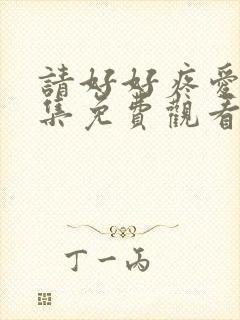 請好好疼愛
集免費觀看
丁一丙